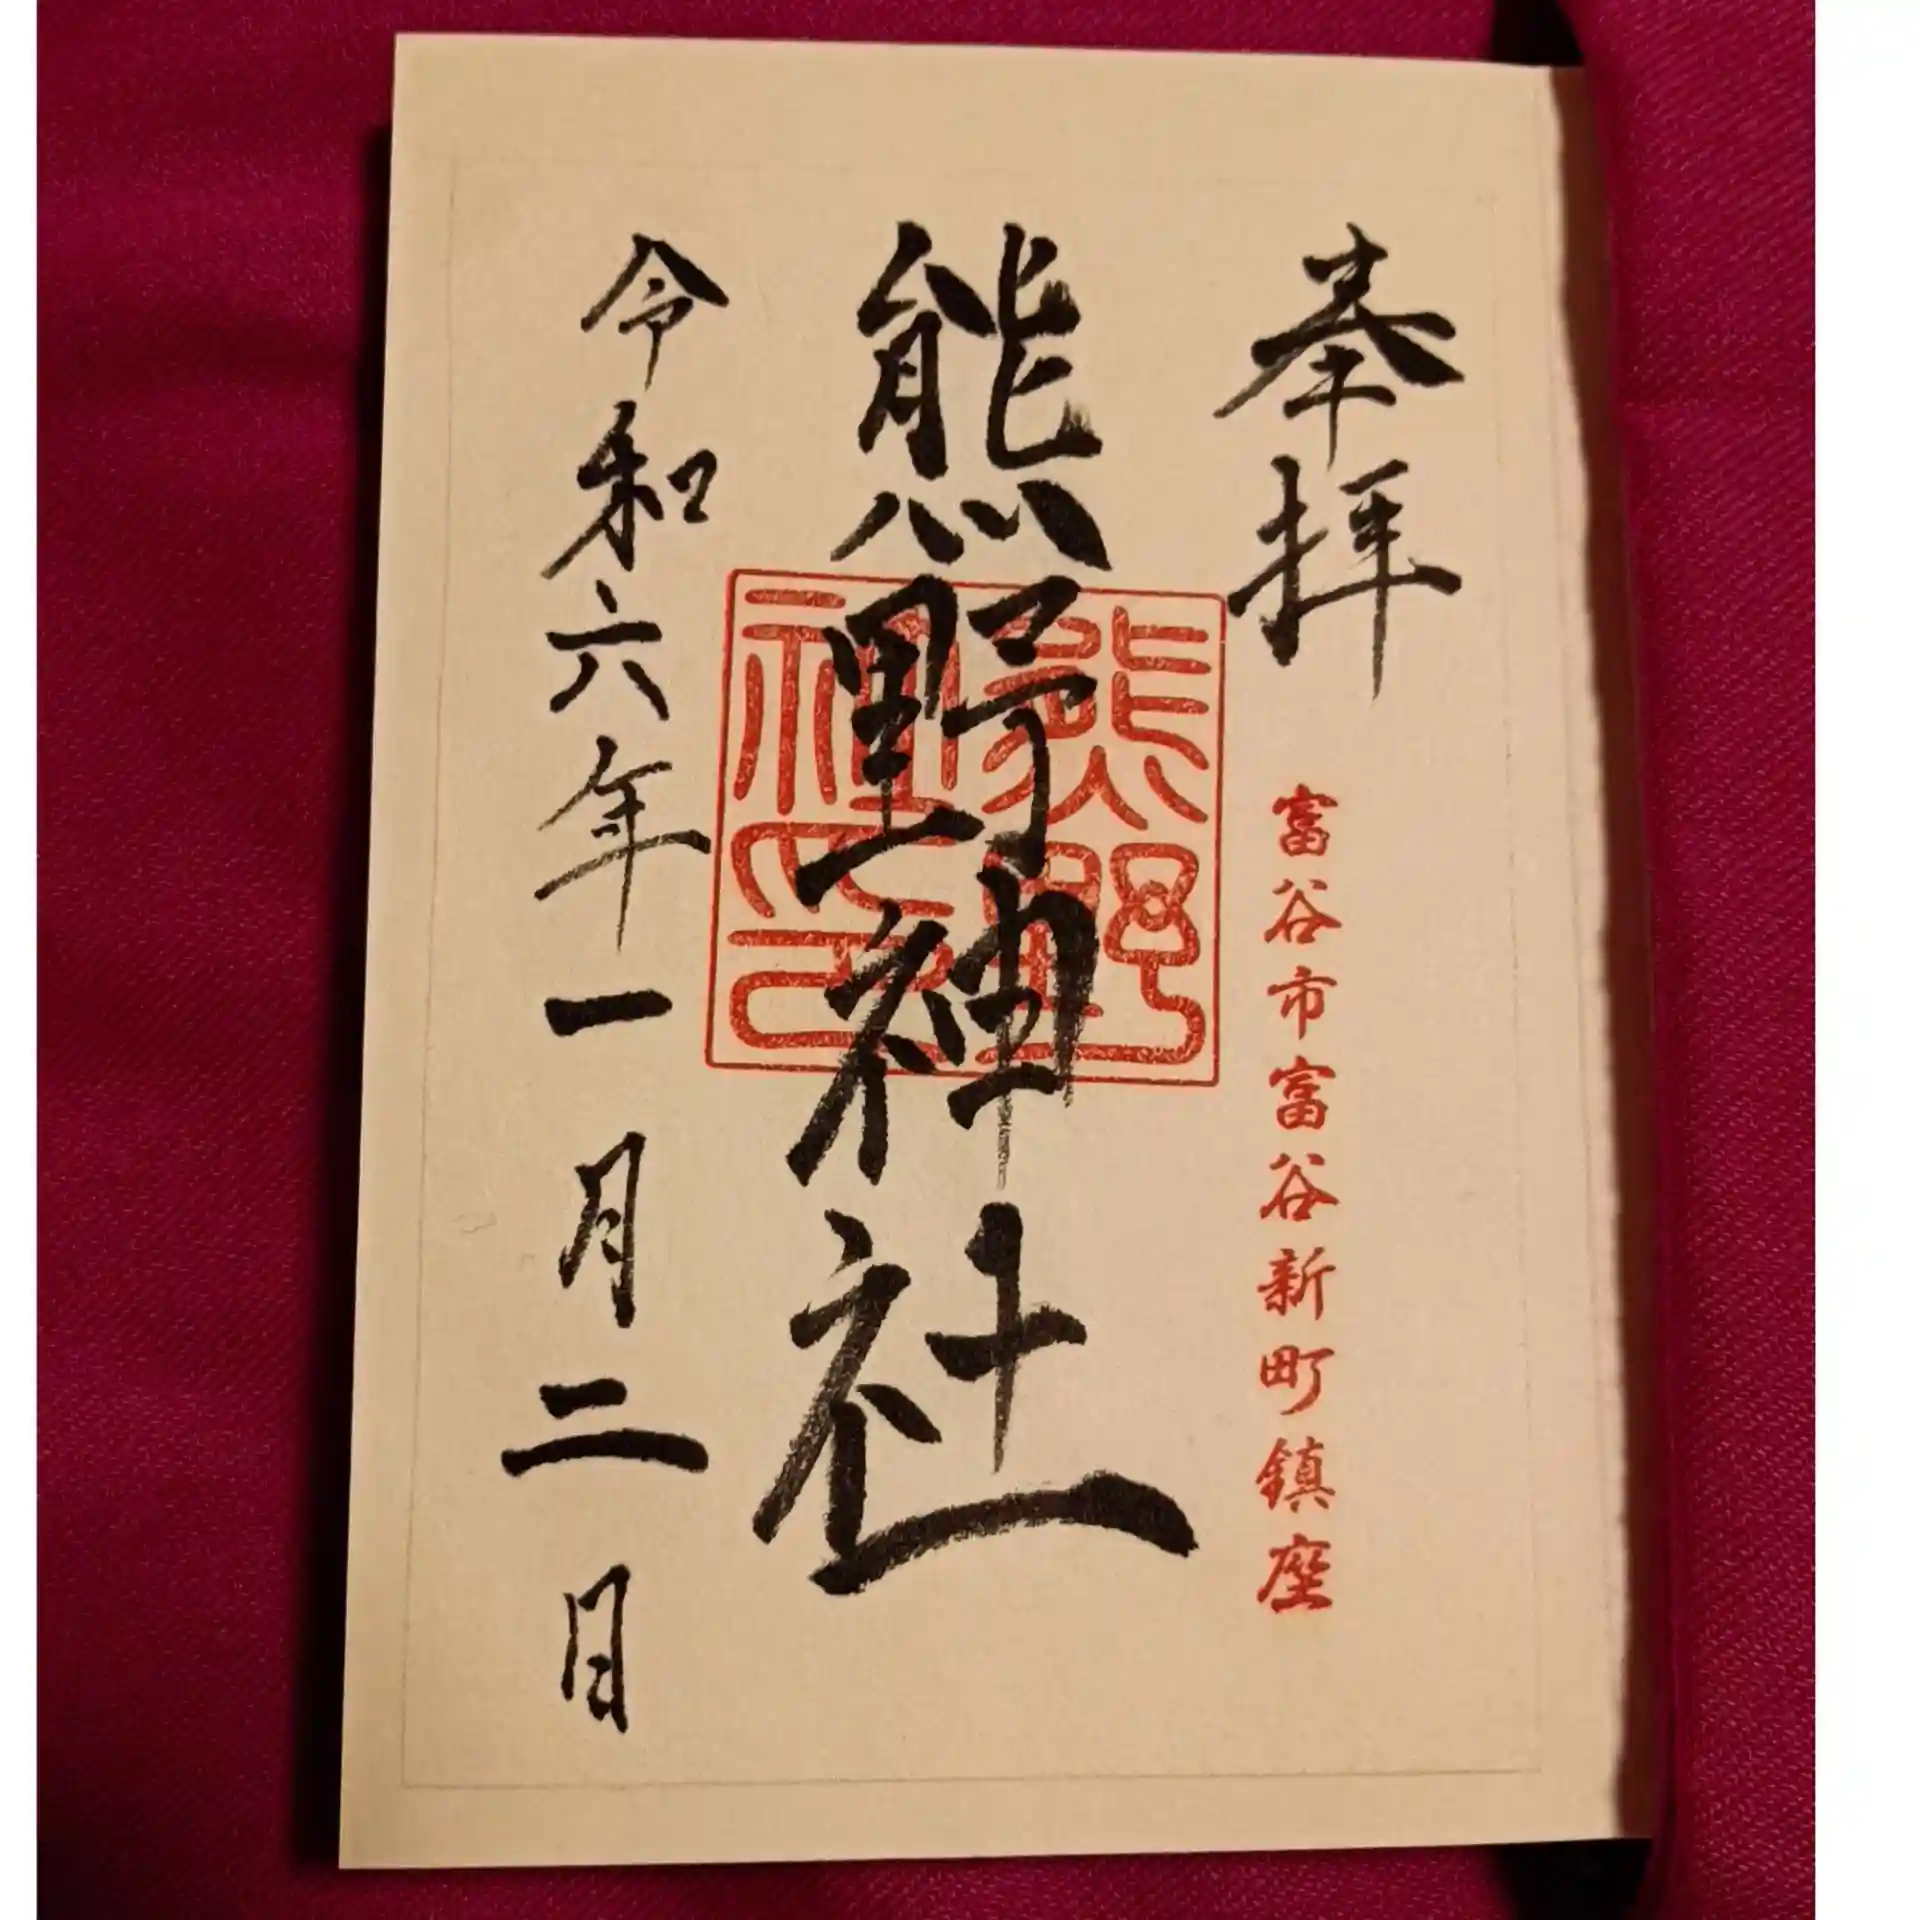 奉拝
富谷市富谷新町鎮座
熊野神社
熊野神社印
令和六年一月二日